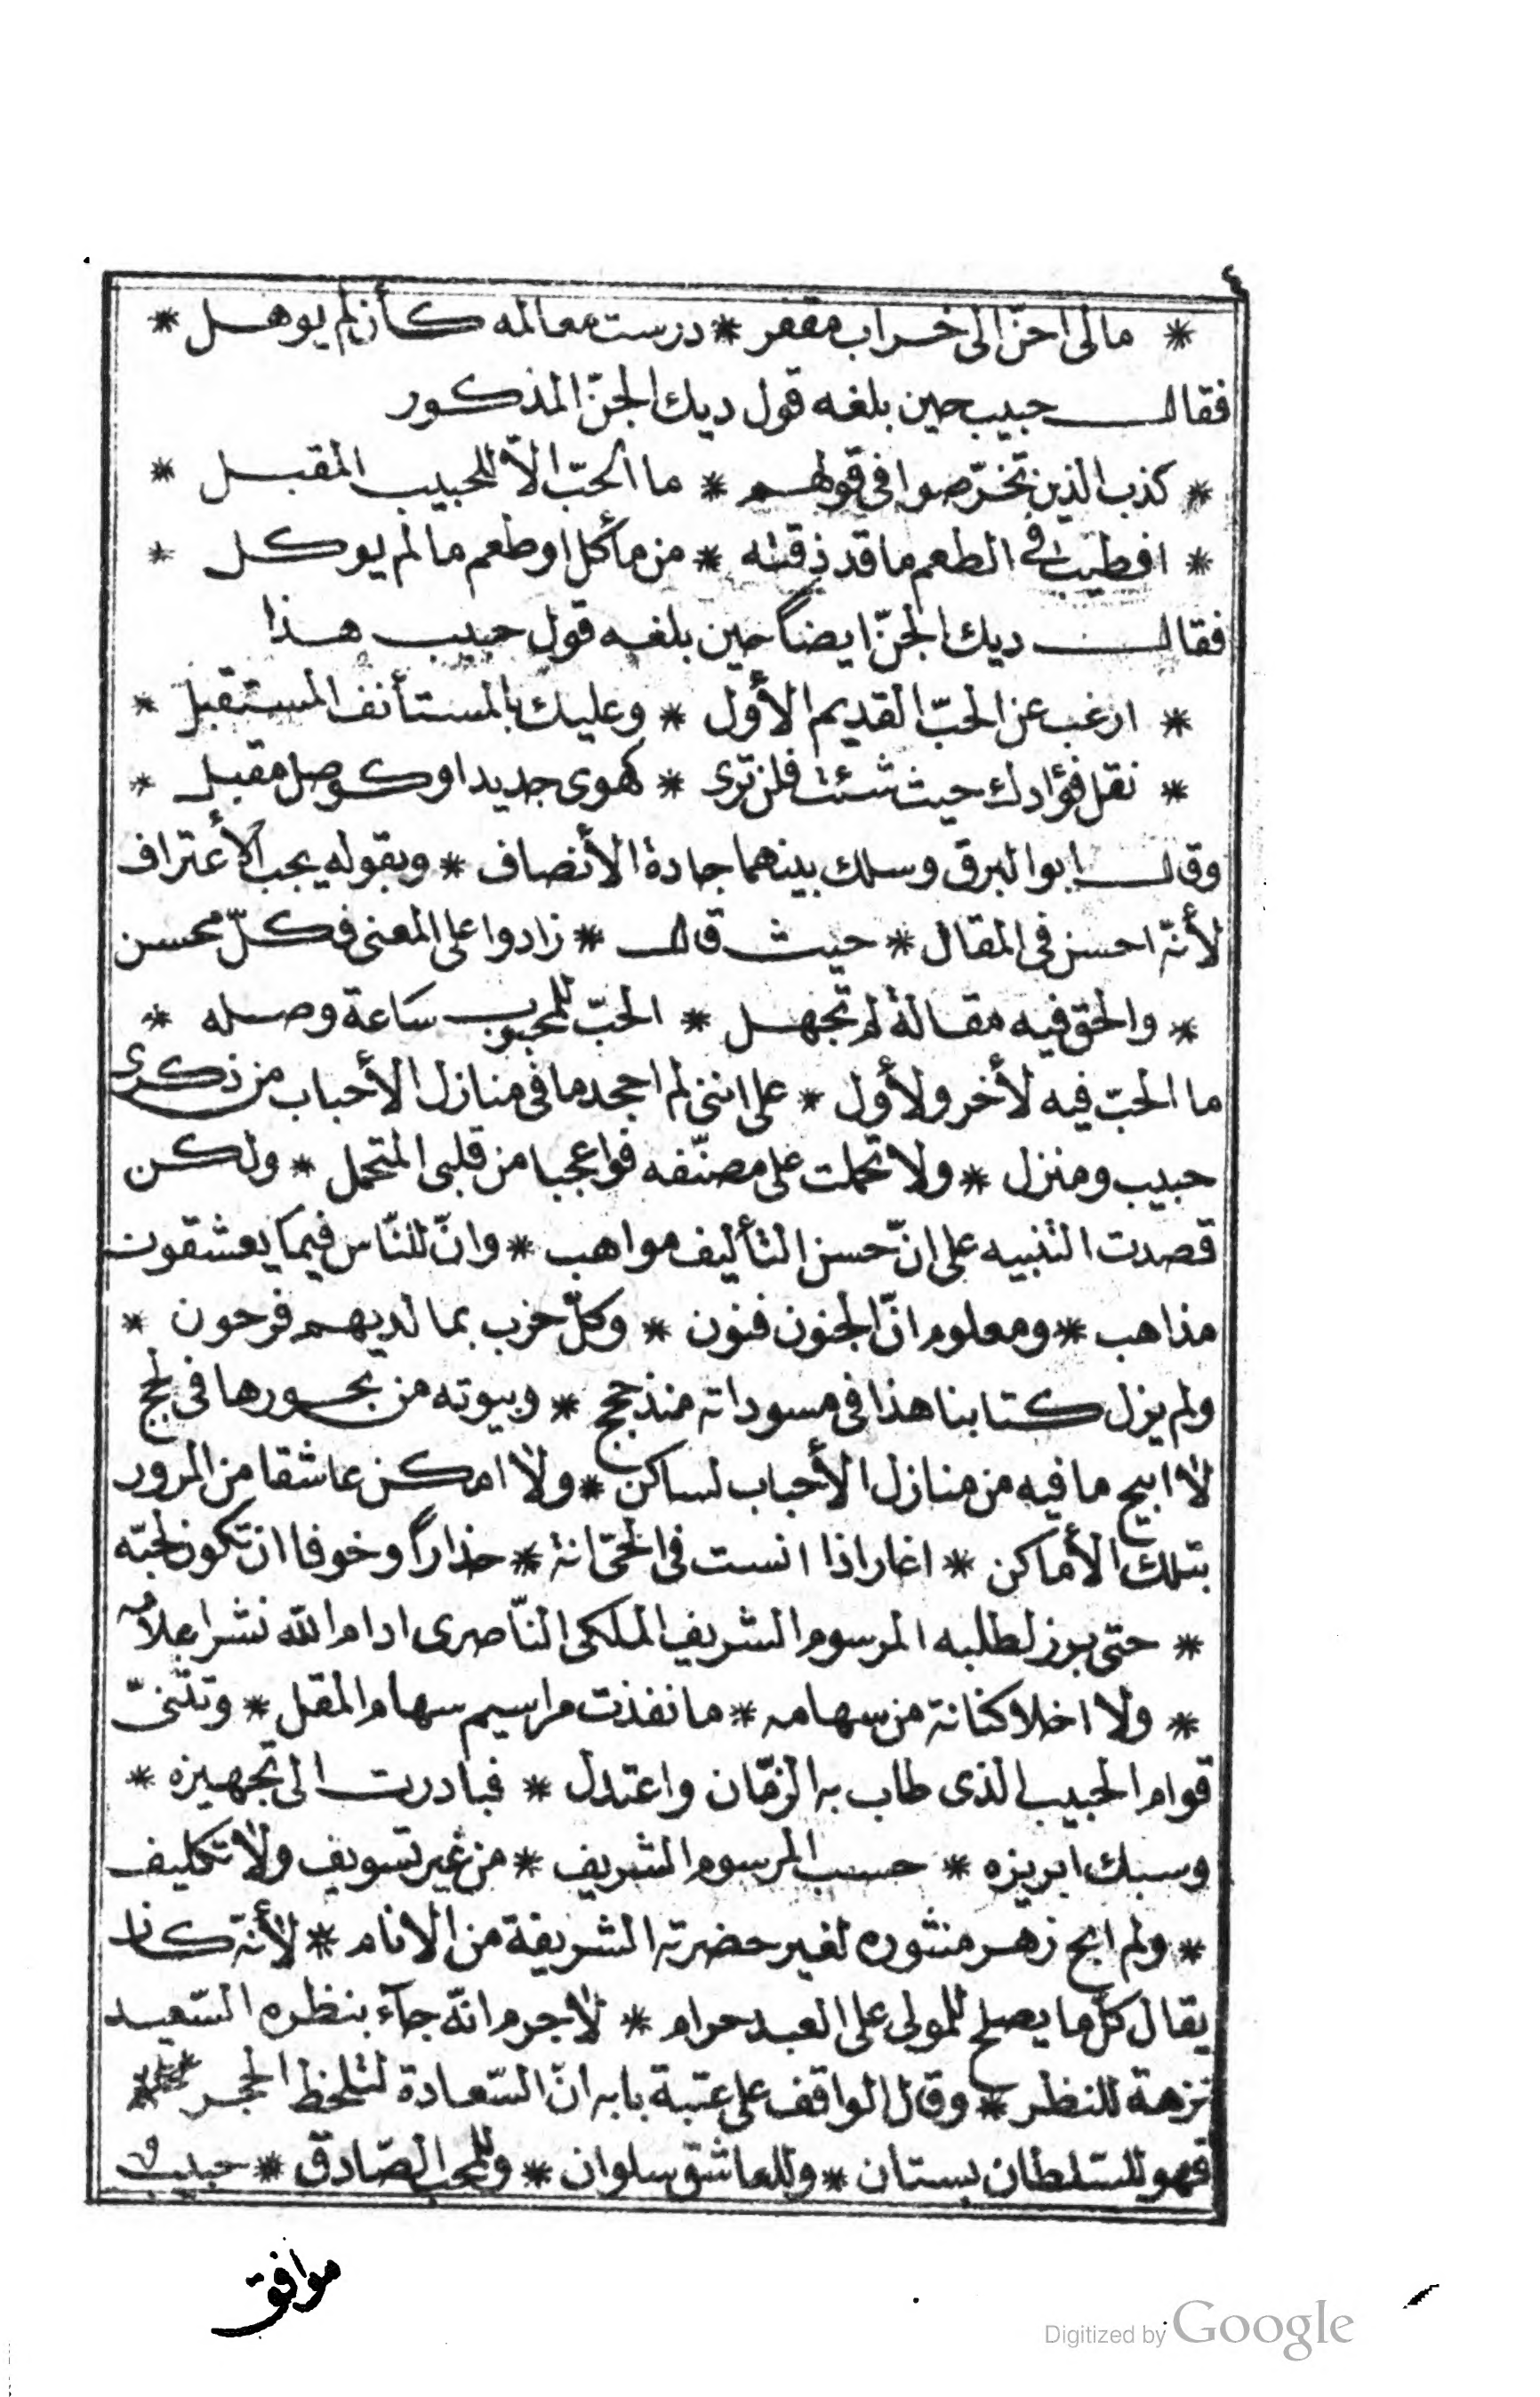 ٤
* مالى احنّ الى خراب مقفر * درست معالمه كأن لم يوهل *
فقال حبيب حين بلغه قول ديك الجنّ المذكور
* كذب الذين تخرّصوا فى قولهم * ما الحبّ الاّ للحبيب المقبل *
* افطيّب فى الطعم ما قد ذقته * من مأكل او طعم ما لم يوكل *
فقال ديك الجنّ ايضاً حين بلغه قول حبيب هذا
* ارغب عن الحبّ القديم الأول * وعليك بالمستأنف المستقبل *
* نقل فؤادك حيث شئت فلن ترى * كهوى جديد او كوصل مقبل *
وقال ابو البرق وسلك بينهما جادة الأنصاف * وبقوله يجب الأعتراف
لأنّه احسن فى المقال * حيث قال * زادوا على المعنى فكلّ محسن
* والحق فيه مقالة لم تجهل * الحبّ للمحبوب ساعة وصله *
ما الحبّ فيه لأخر ولأول * على اننى لم اجحد ما فى منازل الأحباب من ذكرى
حبيب ومنزل * ولا تحملت على مصنّفه فواعجبا من قلبى المتحمل * ولكن
قصدت التنبيه على انّ حسن التأليف مواهب * وانّ للنّاس فيما يعشقون
مذاهب * ومعلوم انّ الجنون فنون * وكلّ حزب بما لديهم فرحون *
ولم يزل كتابنا هذا فى مسوداته منذ حجج * وبيوته من بحورها فى لجج
لا ابيح ما فيه من منازل الأحباب لساكن * ولا امكن عاشقا من المرور
بتلك الأماكن * اغار اذا انست فى الحىّ انة * حذاراً وخوفا ان تكون لحبّه
* حتى برز لطلبه المرسوم الشريف الملكى النّاصرى ادام الله نشر اعلامه
* ولا اخلا كنانة من سهامه * ما نفذت مراسيم سهام المقل * وتثنىّ
قوام الحبيب الذى طاب به الزمّان واعتدل * فبادرت الى تجهيزه *
وسبك ابريزه * حسب المرسوم الشريف * من غير تسويف ولا تكليف
* ولم ابح زهر منثوره لغير حضرته الشريفة من الانام * لأنه كان
يقال كلّ ما يصلح للمولى على العبد حرام * لا جرم انّه جآء بنظره السّعيد
نزهة للنظر * وقال الواقف على عتبة بابه انّ السّعادة لتلحظ الحجر *
فهو للسّلطان بستان * وللعاشق سلوان * وللمحب الصّادق * حبيب
موافق
Digitized by Google